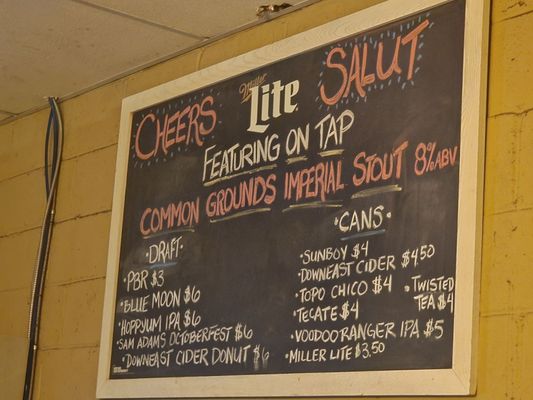 CHEERS
Miller
Lite
SALUT
FEATURING ON TAP
COMMON GROUNDS IMPERIAL STOUT 8% ABV
• DRAFT •
• PBR $3
• BLUE MOON $6
• HOPPYUM IPA $6
• SAM ADAMS OCTOBERFEST $6
• DOWNEAST CIDER DONUT $6
• CANS •
• SUNBOY $4
• DOWNEAST CIDER $4.50
• TOPO CHICO $4
• TWISTED TEA $4
• TECATE $4
• VOODOO RANGER IPA $5
• MILLER LITE $3.50